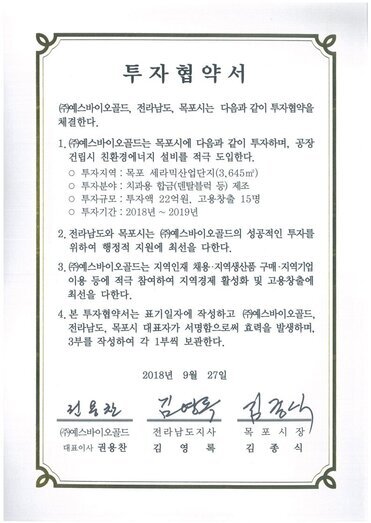 투자협약서
㈜에스바이오골드, 전라남도, 목포시는 다음과 같이 투자협약을
체결한다.
1. ㈜에스바이오골드는 목포시에 다음과 같이 투자하며, 공장
건립시 친환경에너지 설비를 적극 도입한다.
○ 투자지역 : 목포 세라믹산업단지(3,645㎡)
○ 투자분야 : 치과용 합금(덴탈블럭 등) 제조
○ 투자규모 : 투자액 22억원, 고용창출 15명
○ 투자기간 : 2018년 ~ 2019년
2. 전라남도와 목포시는 ㈜에스바이오골드의 성공적인 투자를
위하여 행정적 지원에 최선을 다한다.
3. ㈜에스바이오골드는 지역인재 채용·지역생산품 구매·지역기업
이용 등에 적극 참여하여 지역경제 활성화 및 고용창출에
최선을 다한다.
4. 본 투자협약서는 표기일자에 작성하고 ㈜에스바이오골드,
전라남도, 목포시 대표자가 서명함으로써 효력을 발생하며,
3부를 작성하여 각 1부씩 보관한다.
2018년 9월 27일
권용찬 김영록 김종식
㈜에스바이오골드 전라남도지사 목포시장
대표이사 권용찬 김영록 김종식